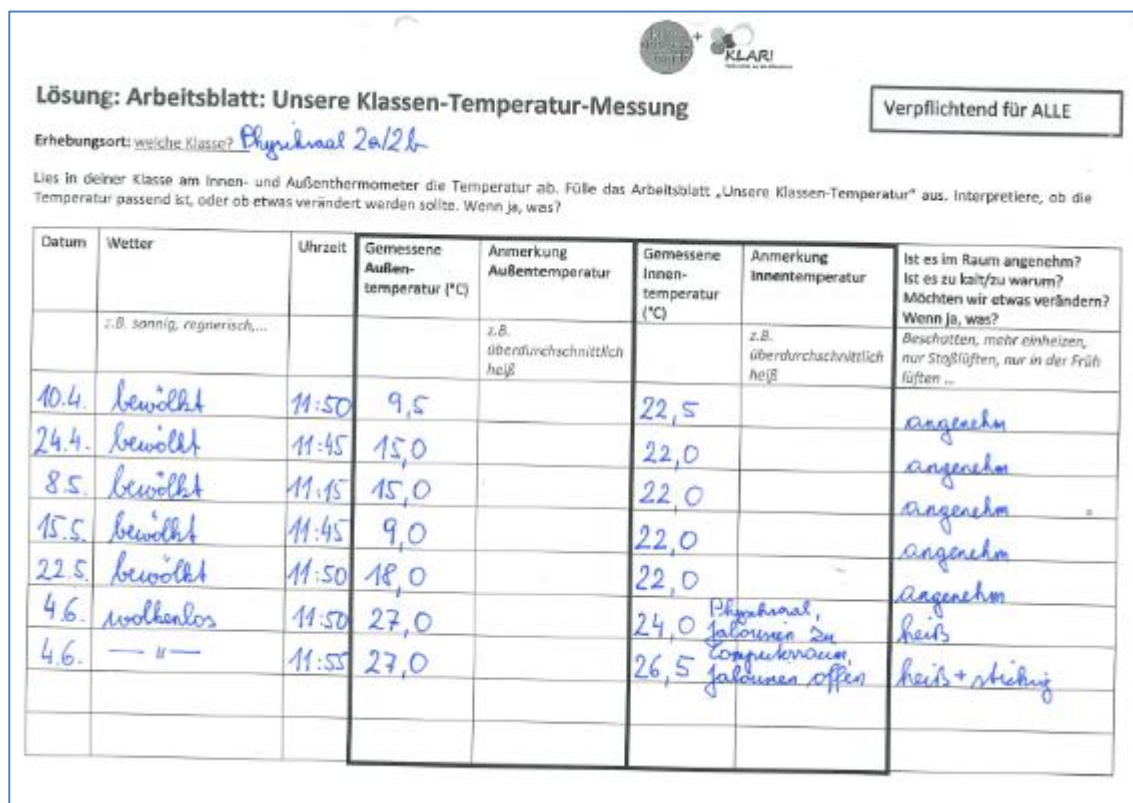 + KLAR!
Lösung: Arbeitsblatt: Unsere Klassen-Temperatur-Messung
Verpflichtend für ALLE
Erhebungsort: welche Klasse? Physiksaal 2a/2b
Lies in deiner Klasse am Innen- und Außenthermometer die Temperatur ab. Fülle das Arbeitsblatt „Unsere Klassen-Temperatur" aus. Interpretiere, ob die
Temperatur passend ist, oder ob etwas verändert werden sollte. Wenn ja, was?
Datum
Wetter
Uhrzeit
Gemessene
Außen-
temperatur (°C)
Anmerkung
Außentemperatur
Gemessene
Innen-
temperatur
(°C)
Anmerkung
Innentemperatur
Ist es im Raum angenehm?
Ist es zu kalt/zu warum?
Möchten wir etwas verändern?
Wenn ja, was?
z.B. sonnig, regnerisch,...
z.B.
überdurchschnittlich
heiß
z.B.
überdurchschnittlich
heiß
Beschatten, mehr einheizen,
nur Stoßlüften, nur in der Früh
lüften ...
10.4. bewölkt 11:50 9,5 22,5 angenehm
24.4. bewölkt 11:45 15,0 22,0 angenehm
8.5. bewölkt 11:15 15,0 22,0 angenehm
15.5. bewölkt 11:45 9,0 22,0 angenehm
22.5. bewölkt 11:50 18,0 22,0 angenehm
4.6. wolkenlos 11:50 27,0 24,0 Physiksaal, Jalousien zu heiß
4.6. — " — 11:55 27,0 26,5 Computerraum, Jalousien offen heiß + stickig